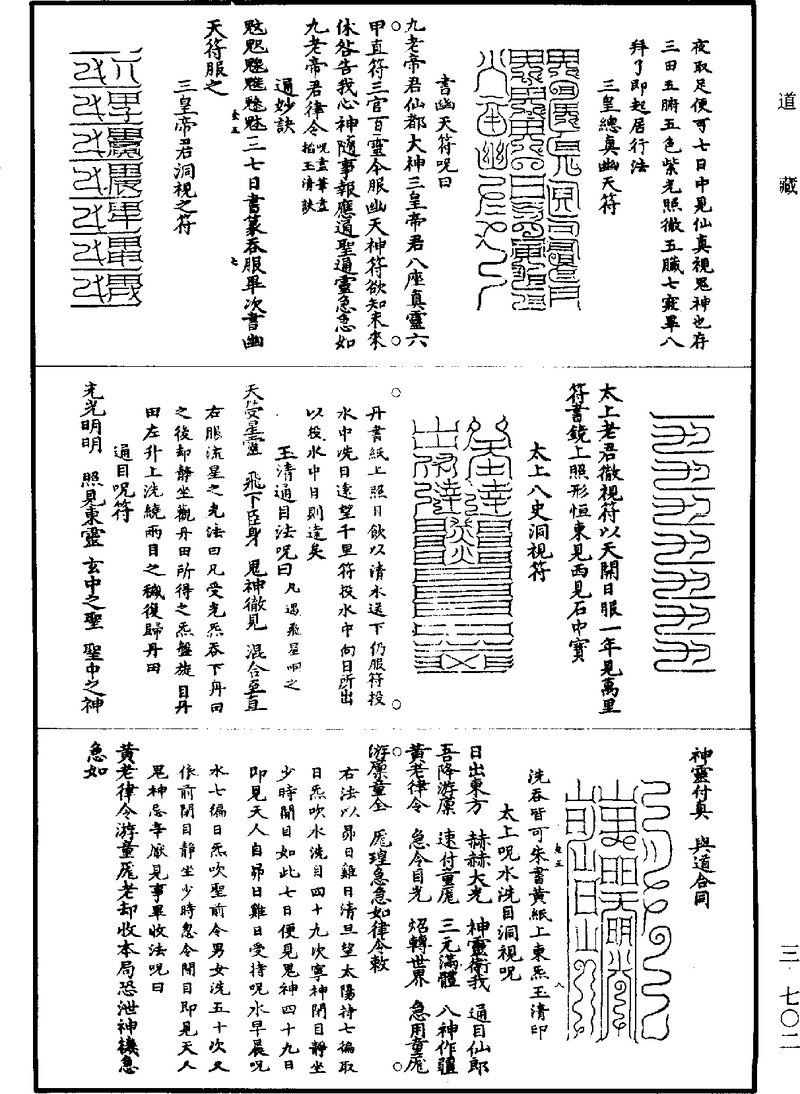 道藏
夜取足便可七日中見仙真視鬼神也存
三田五腑五色紫光照徹五臟七竅畢八
拜了即起居行法
三皇總真幽天符
書幽天符呪曰
九老帝君仙都大神三皇帝君八座真靈六
甲直符三官百靈令服幽天神符欲知未來
休咎告我心神隨事報應通聖通靈急急如
九老帝君律令呪畫筆直掐玉清訣
通妙訣
二七日書篆吞服畢次書幽
天符服之
三皇帝君洞視之符
太上老君徹視符以天開日服一年見萬里
符書鏡上照形恒東見西見石中寶
太上八史洞視符
丹書紙上照日飲以清水送下仍服符投
水中洗目遠望千里符投水中向日所出
以投水中目則達矣
玉清通目法呪曰凡遇飛星呪之
天受星靈 飛下臣身 鬼神徹見 混合至真
右服流星之光法曰凡受光炁吞下丹田
之後却靜坐觀丹田所得之炁盤旋目丹
田左升上洗繞兩目之穢復歸丹田
通目呪符
光光明明 照見東靈 玄中之聖 聖中之神
神靈付真 與道合同
洗吞皆可朱書黃紙上東炁玉清印
太上呪水洗目洞視呪
日出東方 赫赫大光 神靈衛我 通目仙郎
吾降游㢘 速付童尨 三元滿體 八神作疆
黃老律令 急令目光 炤轉世界 急用童尨
游㢘童全 尨瑝急急如律令敕
右法以昴日雞日清旦望太陽持七徧取
日炁吹水洗目四十九次寧神閉目靜坐
少時開目如此七日便見鬼神四十九日
即見天人自昴日雞日受持呪水早晨呪
水七徧日炁吹聖前令男女洗五十次又
依前閉目靜坐少時忽令開目即見天人
鬼神忌辛厭見事畢收法呪曰
黃老律令游童尨老却收本局恐泄神機急
急如
三·七〇二